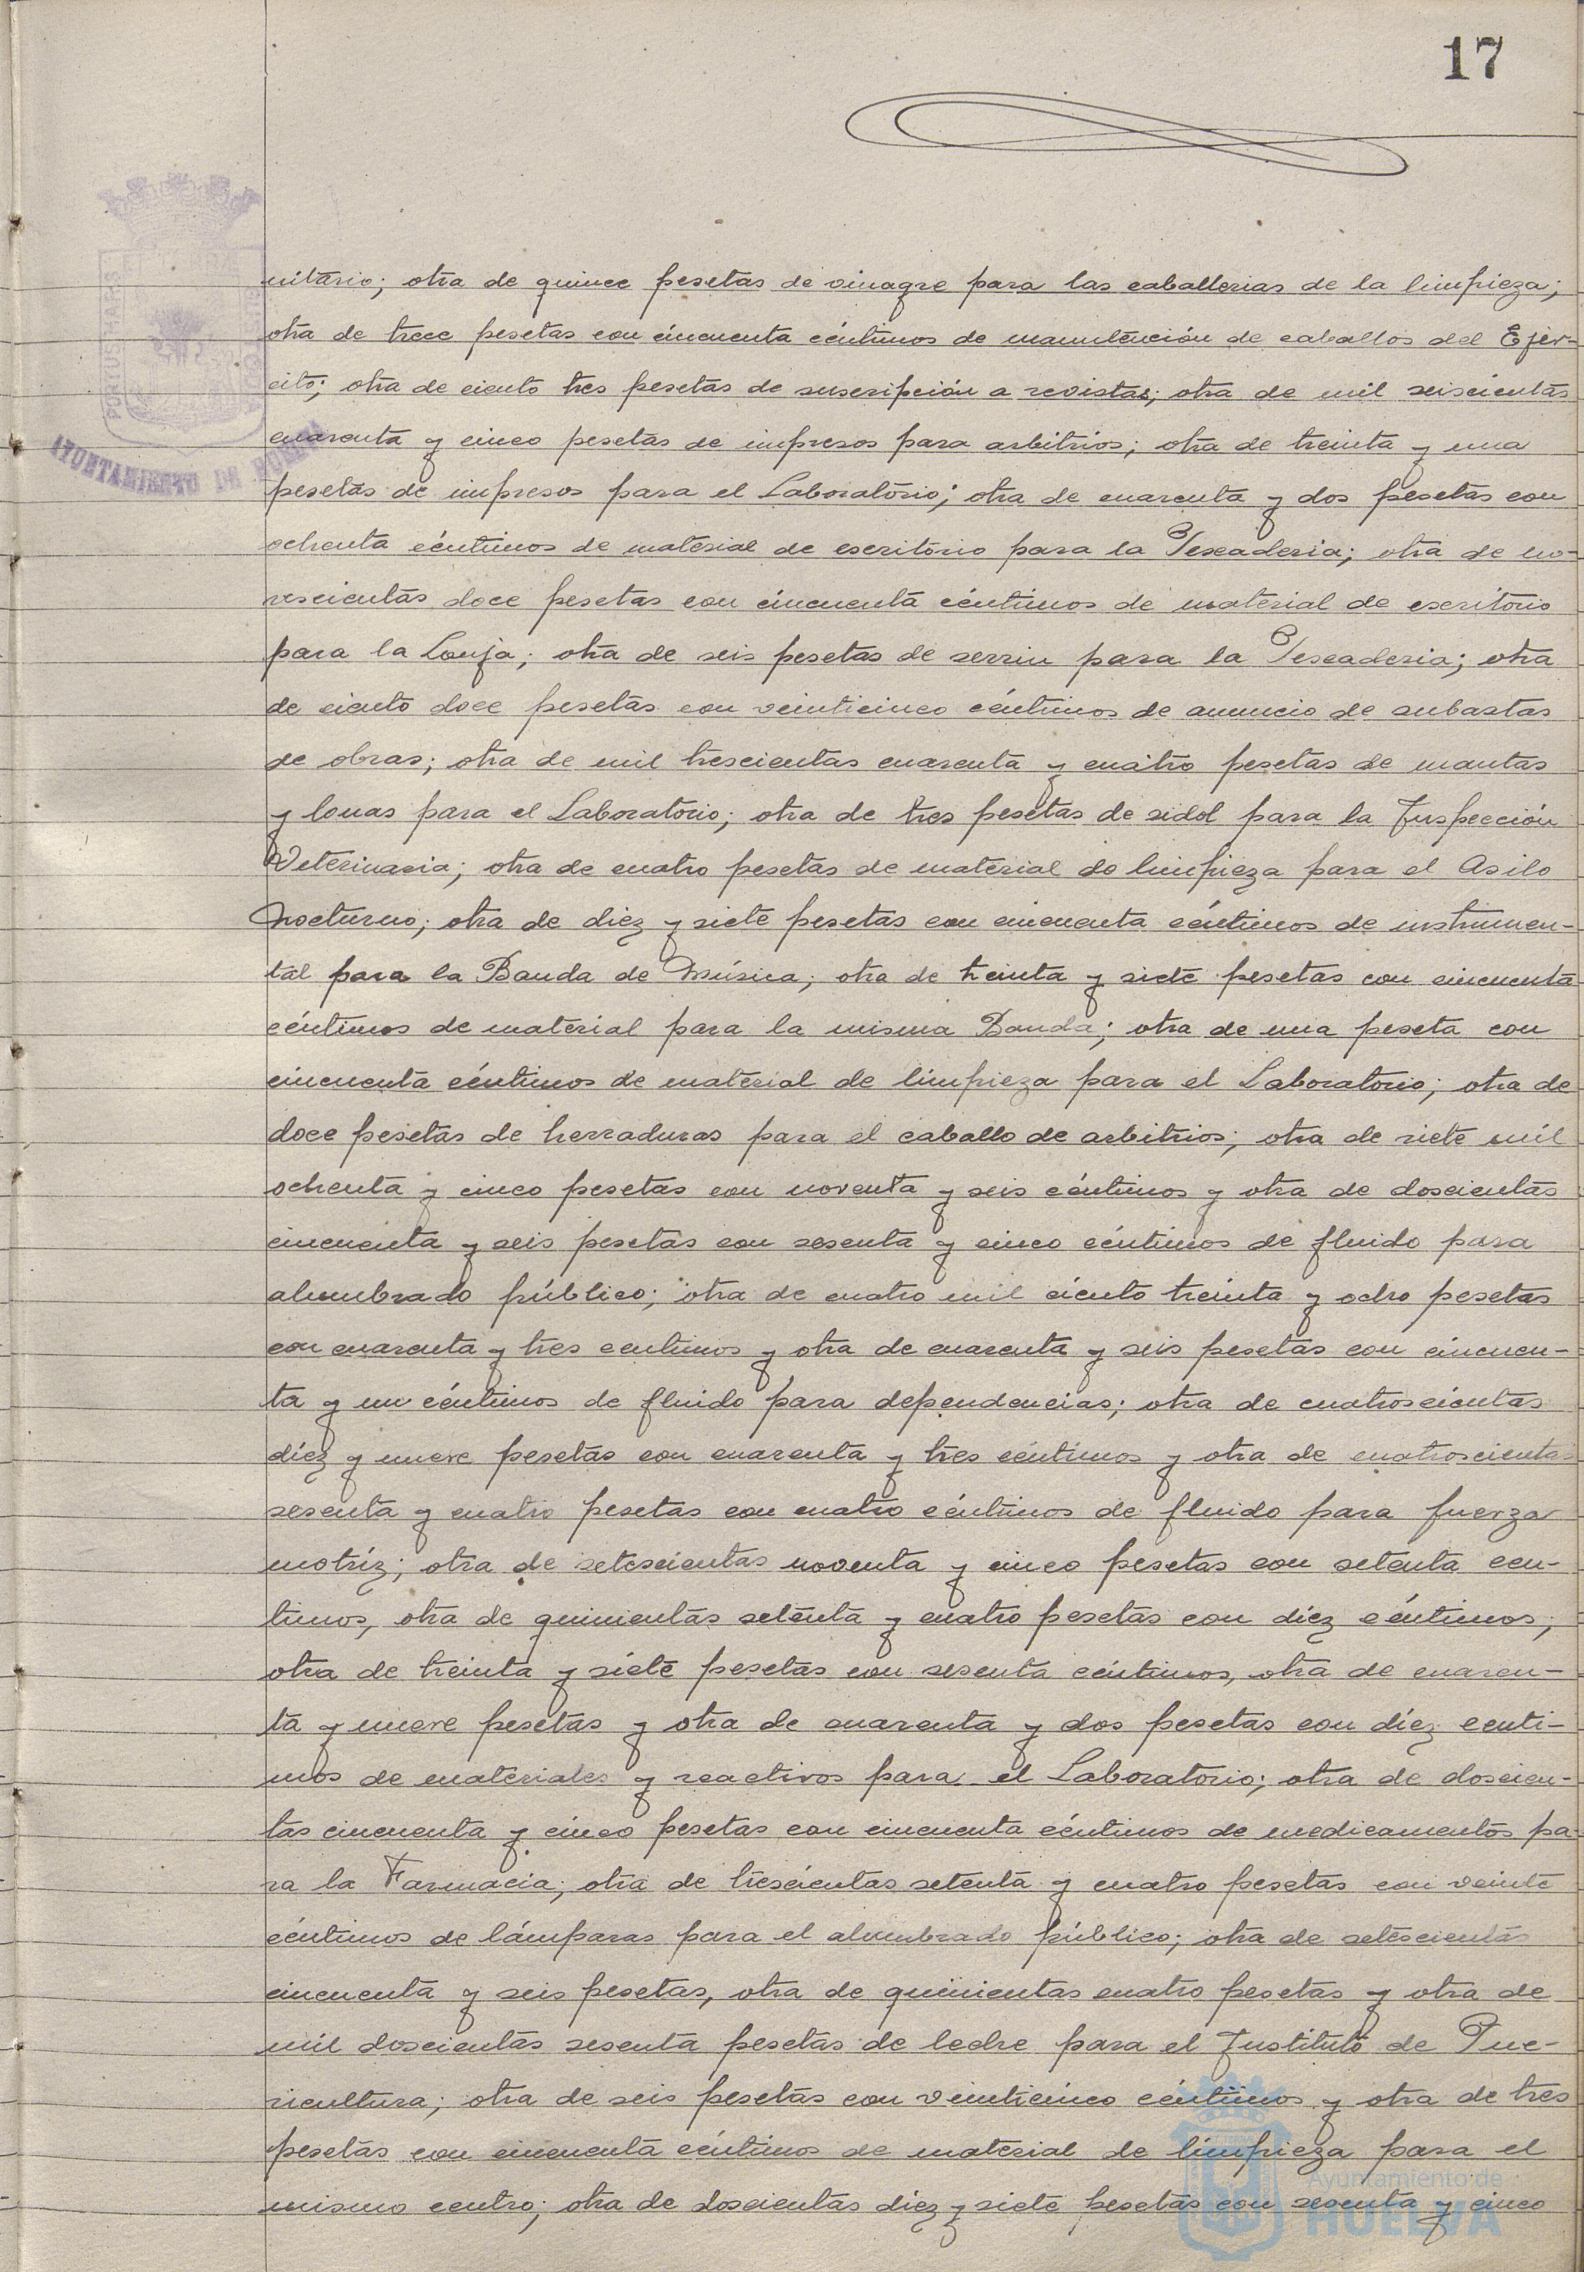 17
nitario; otra de quince pesetas de vinagre para las caballerias de la limpieza;
otra de trece pesetas con cincuenta céntimos de manutención de caballos del Ejér-
cito; otra de ciento tres pesetas de suscripción a revistas; otra de mil seiscientas
cuarenta y cinco pesetas de impresos para arbitrios; otra de treinta y una
pesetas de impresos para el Laboratorio; otra de cuarenta y dos pesetas con
ochenta céntimos de material de escritorio para la Pescaderia; otra de no-
vescientas doce pesetas con cincuenta céntimos de material de escritorio
para la Lonja; otra de seis pesetas de serrin para la Pescaderia; otra
de ciento doce pesetas con veinticinco céntimos de anuncio de subastas
de obras; otra de mil trescientas cuarenta y cuatro pesetas de mantas
y lonas para el Laboratorio; otra de tres pesetas de sidol para la Inspección
Veterinaria; otra de cuatro pesetas de material de limpieza para el Asilo
Nocturno; otra de diez y siete pesetas con cincuenta céntimos de instrumen-
tal para la Banda de Música; otra de treinta y siete pesetas con cincuenta
céntimos de material para la misma Banda; otra de una peseta con
cincuenta céntimos de material de limpieza para el Laboratorio; otra de
doce pesetas de herraduras para el caballo de arbitrios; otra de siete mil
ochenta y cinco pesetas con noventa y seis céntimos y otra de doscientas
cincuenta y seis pesetas con sesenta y cinco céntimos de fluido para
alumbrado público; otra de cuatro mil ciento treinta y ocho pesetas
con cuarenta y tres centimos y otra de cuarenta y seis pesetas con cincuen-
ta y un céntimos de fluido para dependencias; otra de cuatroscientas
diez y nueve pesetas con cuarenta y tres céntimos y otra de cuatroscientas
sesenta y cuatro pesetas con cuatro céntimos de fluido para fuerza
motríz; otra de setescientas noventa y cinco pesetas con setenta cen-
timos, otra de quinientas setenta y cuatro pesetas con diez céntimos;
otra de treinta y siete pesetas con sesenta céntimos, otra de cuaren-
ta y nueve pesetas y otra de cuarenta y dos pesetas con diez centi-
mos de materiales y reactivos para el Laboratorio; otra de doscien-
tas cincuenta y cinco pesetas con cincuenta céntimos de medicamentos pa-
ra la Farmacia; otra de trescientas setenta y cuatro pesetas con veinte
céntimos de lámparas para el alumbrado público; otra de setescientas
cincuenta y seis pesetas, otra de quinientas cuatro pesetas y otra de
mil doscientas sesenta pesetas de leche para el Instituto de Pue-
ricultura; otra de seis pesetas con veinticinco céntimos y otra de tres
pesetas con cincuenta céntimos de material de limpieza para el
mismo centro; otra de doscientas diez y siete pesetas con sesenta y cinco
AYUNTAMIENTO DE HUELVA
Ayuntamiento de
HUELVA